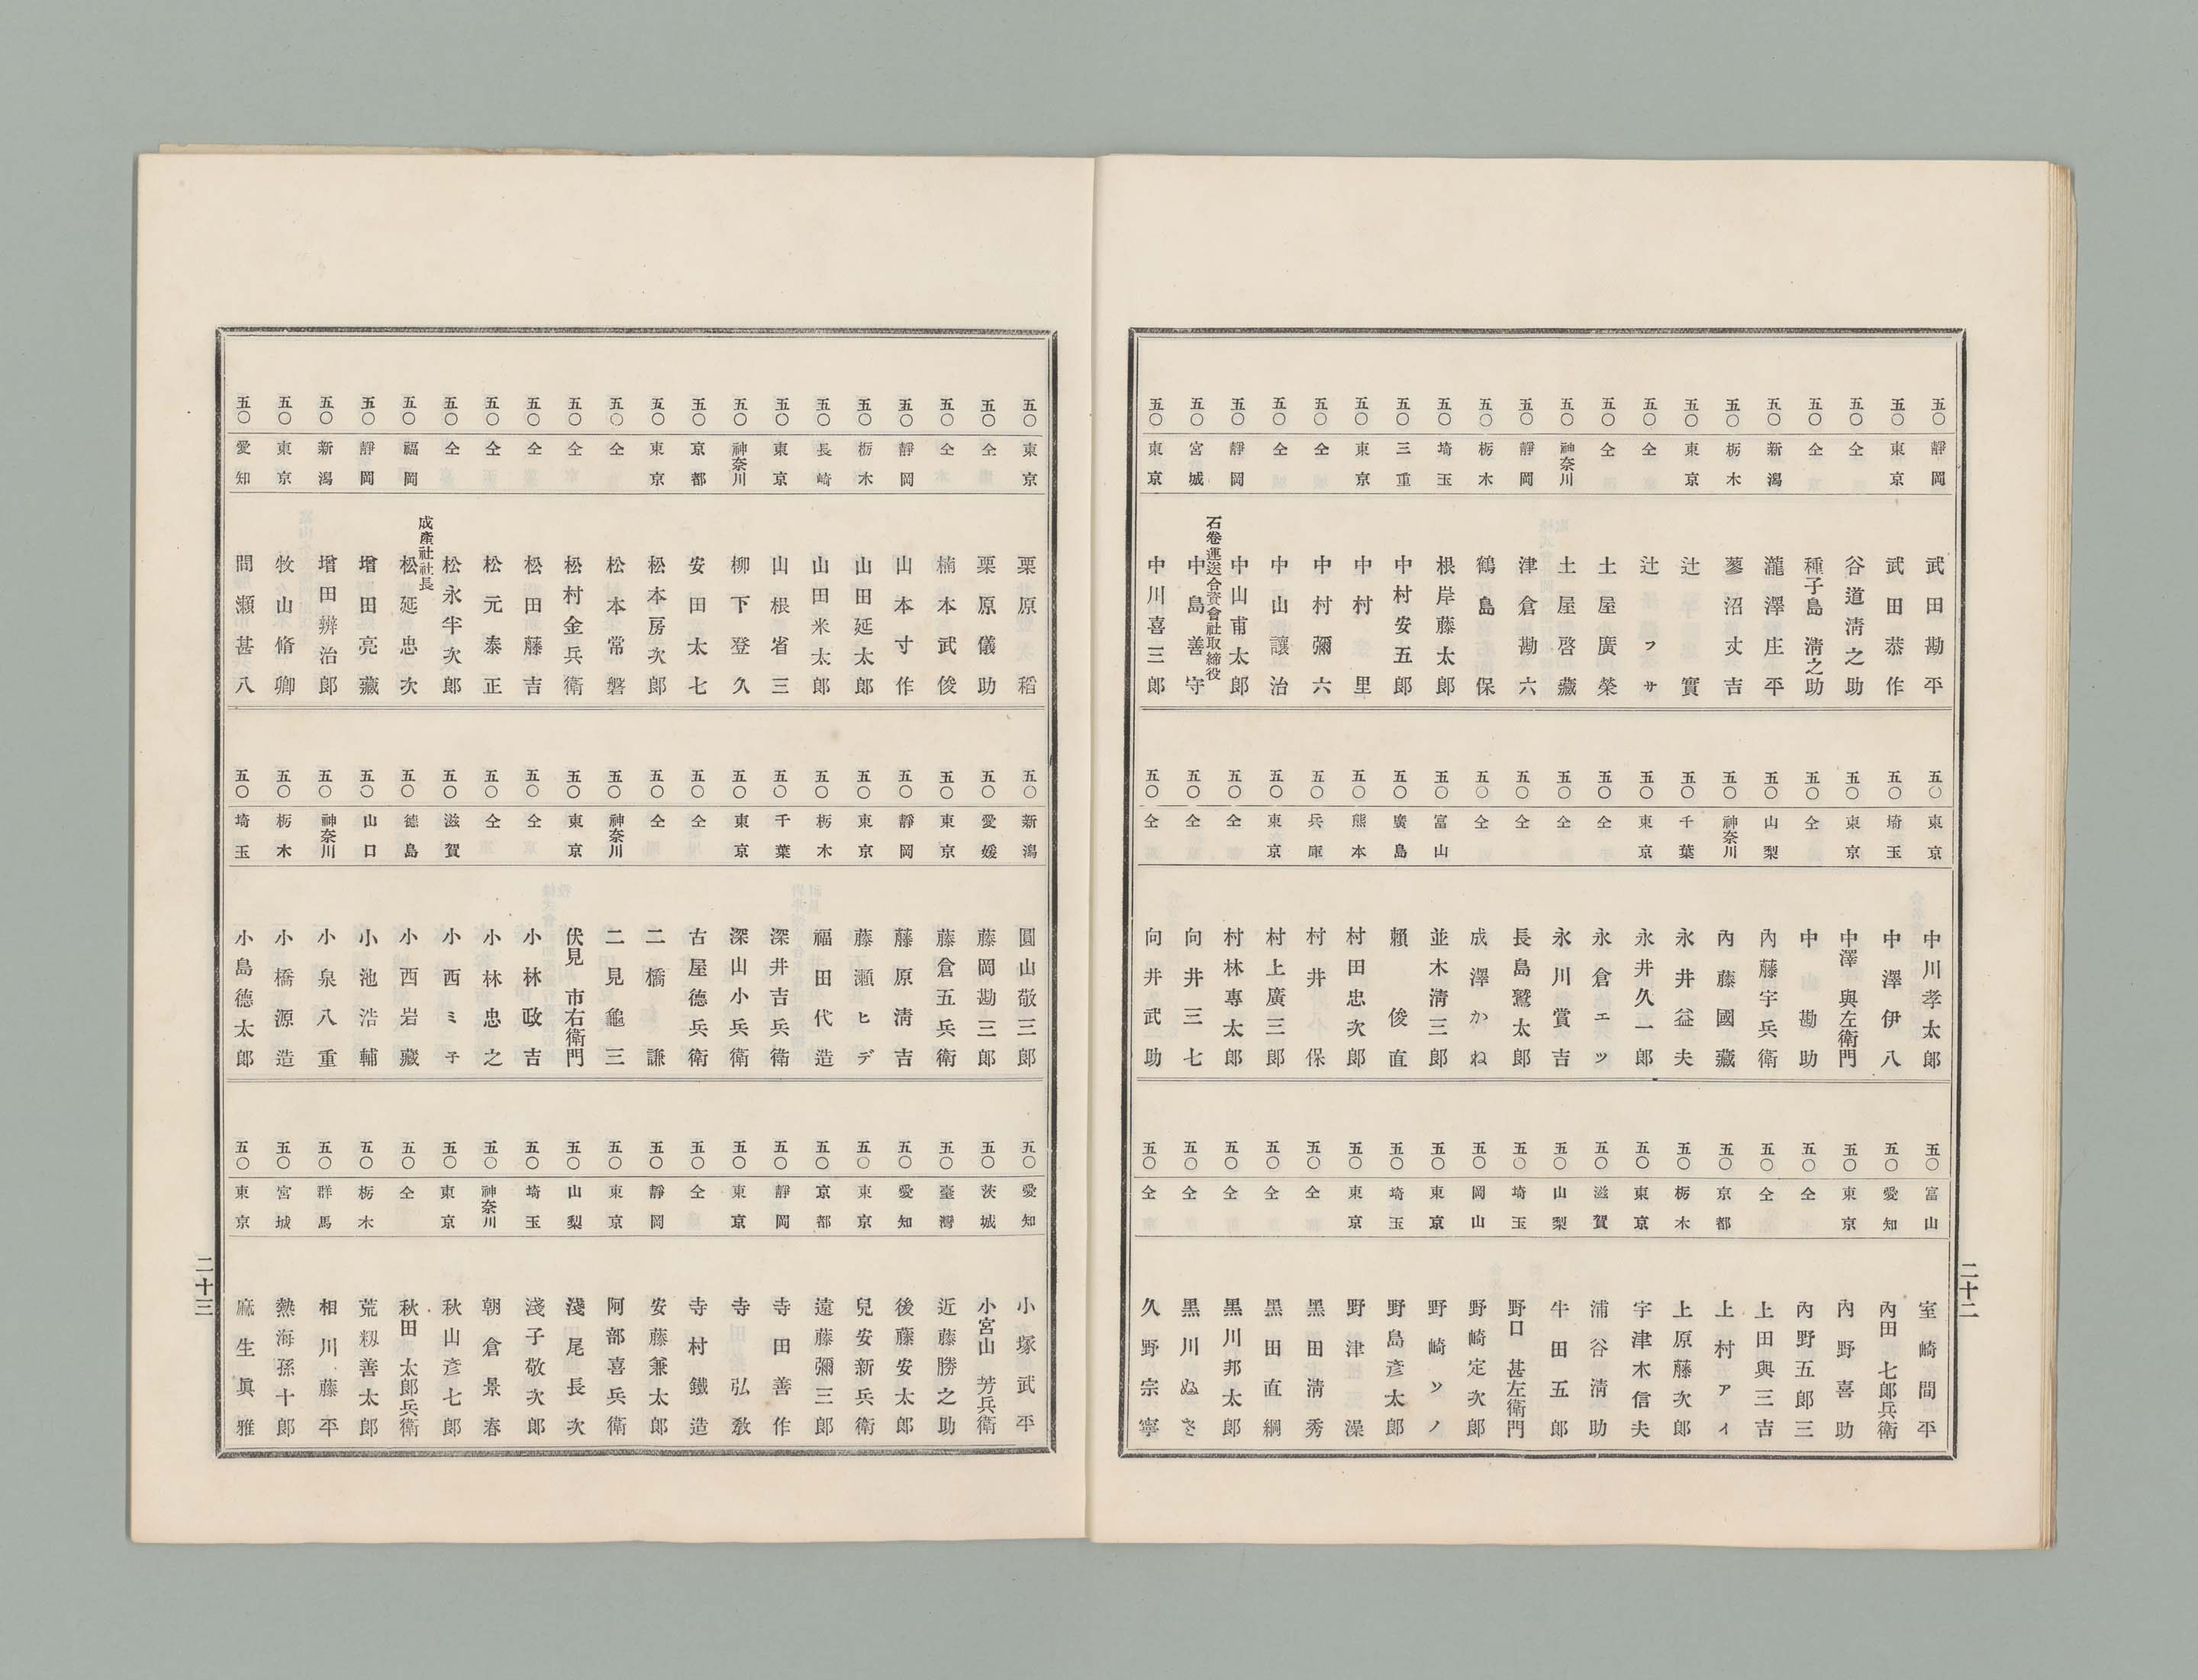 五〇 靜岡 武田勘平
五〇 東京 武田恭作
五〇 仝 谷道淸之助
五〇 仝 種子島淸之助
五〇 新潟 瀧澤庄平
五〇 栃木 蓼沼丈吉
五〇 東京 辻實
五〇 仝 辻フサ
五〇 仝 土屋廣榮
五〇 神奈川 土屋啓藏
五〇 靜岡 津倉勘六
五〇 栃木 鶴島保
五〇 埼玉 根岸藤太郎
五〇 三重 中村安五郎
五〇 東京 中村里
五〇 仝 中村彌六
五〇 仝 中山讓治
五〇 靜岡 中山甫太郎
五〇 宮城 石卷運送合資會社取締役 中島善守
五〇 東京 中川喜三郎
五〇 東京 中川孝太郎
五〇 埼玉 中澤伊八
五〇 東京 中澤與左衛門
五〇 仝 中勘助
五〇 山梨 內藤宇兵衛
五〇 神奈川 內藤國藏
五〇 千葉 永井益夫
五〇 東京 永井久一郎
五〇 仝 永倉エツ
五〇 仝 永川賞吉
五〇 仝 長島鷲太郎
五〇 仝 成澤かね
五〇 富山 並木淸三郎
五〇 廣島 賴俊直
五〇 熊本 村田忠次郎
五〇 兵庫 村井保
五〇 東京 村上廣三郎
五〇 仝 村林專太郎
五〇 仝 向井三七
五〇 仝 向井武助
五〇 富山 室崎間平
五〇 愛知 內田七郎兵衛
五〇 東京 內野喜助
五〇 仝 內野五郎三
五〇 仝 上田與三吉
五〇 京都 上村アイ
五〇 栃木 上原藤次郎
五〇 東京 宇津木信夫
五〇 滋賀 浦谷淸助
五〇 山梨 牛田五郎
五〇 埼玉 野口甚左衛門
五〇 岡山 野崎定次郎
五〇 東京 野崎ツノ
五〇 埼玉 野島彦太郎
五〇 東京 野津澡
五〇 仝 黑田淸秀
五〇 仝 黑田直綱
五〇 仝 黑川邦太郎
五〇 仝 黑川ぬさ
五〇 仝 久野宗寧
二十二
五〇 東京 栗原稻
五〇 仝 栗原儀助
五〇 仝 楠本武俊
五〇 靜岡 山本寸作
五〇 栃木 山田延太郎
五〇 長崎 山田米太郎
五〇 東京 山根省三
五〇 神奈川 柳下登久
五〇 京都 安田太七
五〇 東京 松本房次郎
五〇 仝 松本常磐
五〇 仝 松村金兵衛
五〇 仝 松田藤吉
五〇 仝 松元泰正
五〇 仝 松永半次郎
五〇 福岡 成產社社長 松延忠次
五〇 靜岡 增田亮藏
五〇 新潟 增田辨治郎
五〇 東京 牧山脩卿
五〇 愛知 間瀨甚八
五〇 新潟 圓山敬三郎
五〇 愛媛 藤岡勘三郎
五〇 東京 藤倉五兵衛
五〇 靜岡 藤原淸吉
五〇 東京 藤瀨ヒデ
五〇 栃木 福田代造
五〇 千葉 深井吉兵衛
五〇 東京 深山小兵衛
五〇 仝 古屋德兵衛
五〇 仝 二橋謙
五〇 神奈川 二見龜三
五〇 東京 伏見市右衛門
五〇 仝 小林政吉
五〇 仝 小林忠之
五〇 滋賀 小西ミチ
五〇 德島 小西岩藏
五〇 山口 小池浩輔
五〇 神奈川 小泉八重
五〇 栃木 小橋源造
五〇 埼玉 小島德太郎
五〇 愛知 小塚武平
五〇 茨城 小宮山芳兵衛
五〇 臺灣 近藤勝之助
五〇 愛知 後藤安太郎
五〇 東京 兒安新兵衛
五〇 京都 遠藤彌三郎
五〇 靜岡 寺田善作
五〇 東京 寺弘敎
五〇 仝 寺村鐵造
五〇 靜岡 安藤兼太郎
五〇 東京 阿部喜兵衛
五〇 山梨 淺尾長次
五〇 埼玉 淺子敬次郎
五〇 神奈川 朝倉景春
五〇 東京 秋山彥七郎
五〇 仝 秋田太郎兵衛
五〇 栃木 荒籾善太郎
五〇 群馬 相川藤平
五〇 宮城 熱海孫十郎
五〇 東京 麻生眞雅
二十三